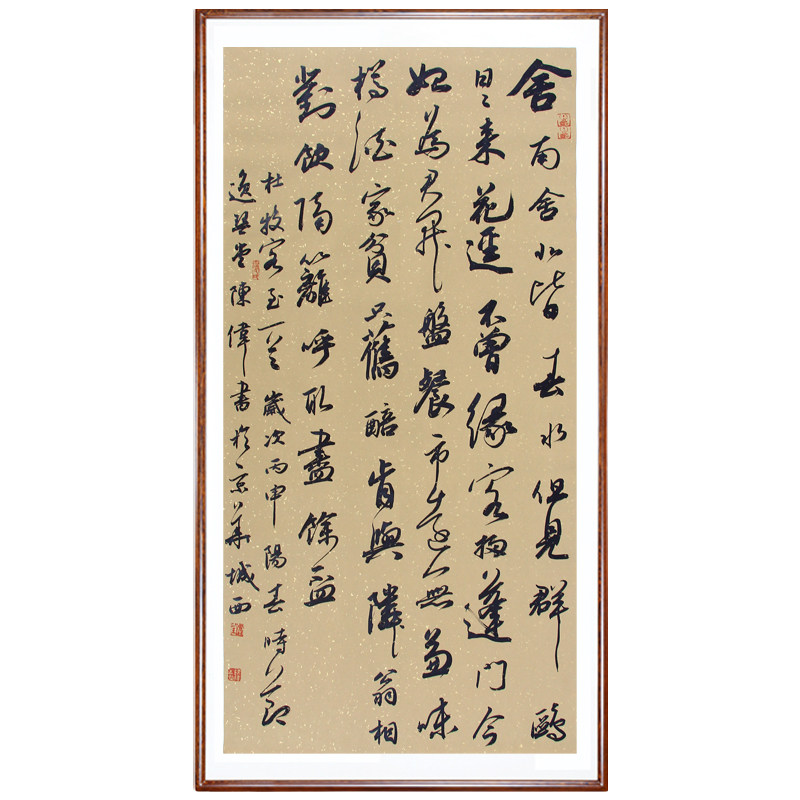 舍南舍北皆春水但見群鷗
日々来花逕不曾緣客掃蓬門今
始為君開盤餐市遠無兼味
樽酒家貧只舊醅肯與隣翁相
對飲隔籬呼取盡餘盃
杜牧客至一首歲次丙申陽春時節
逸堂陳偉書於京華城西